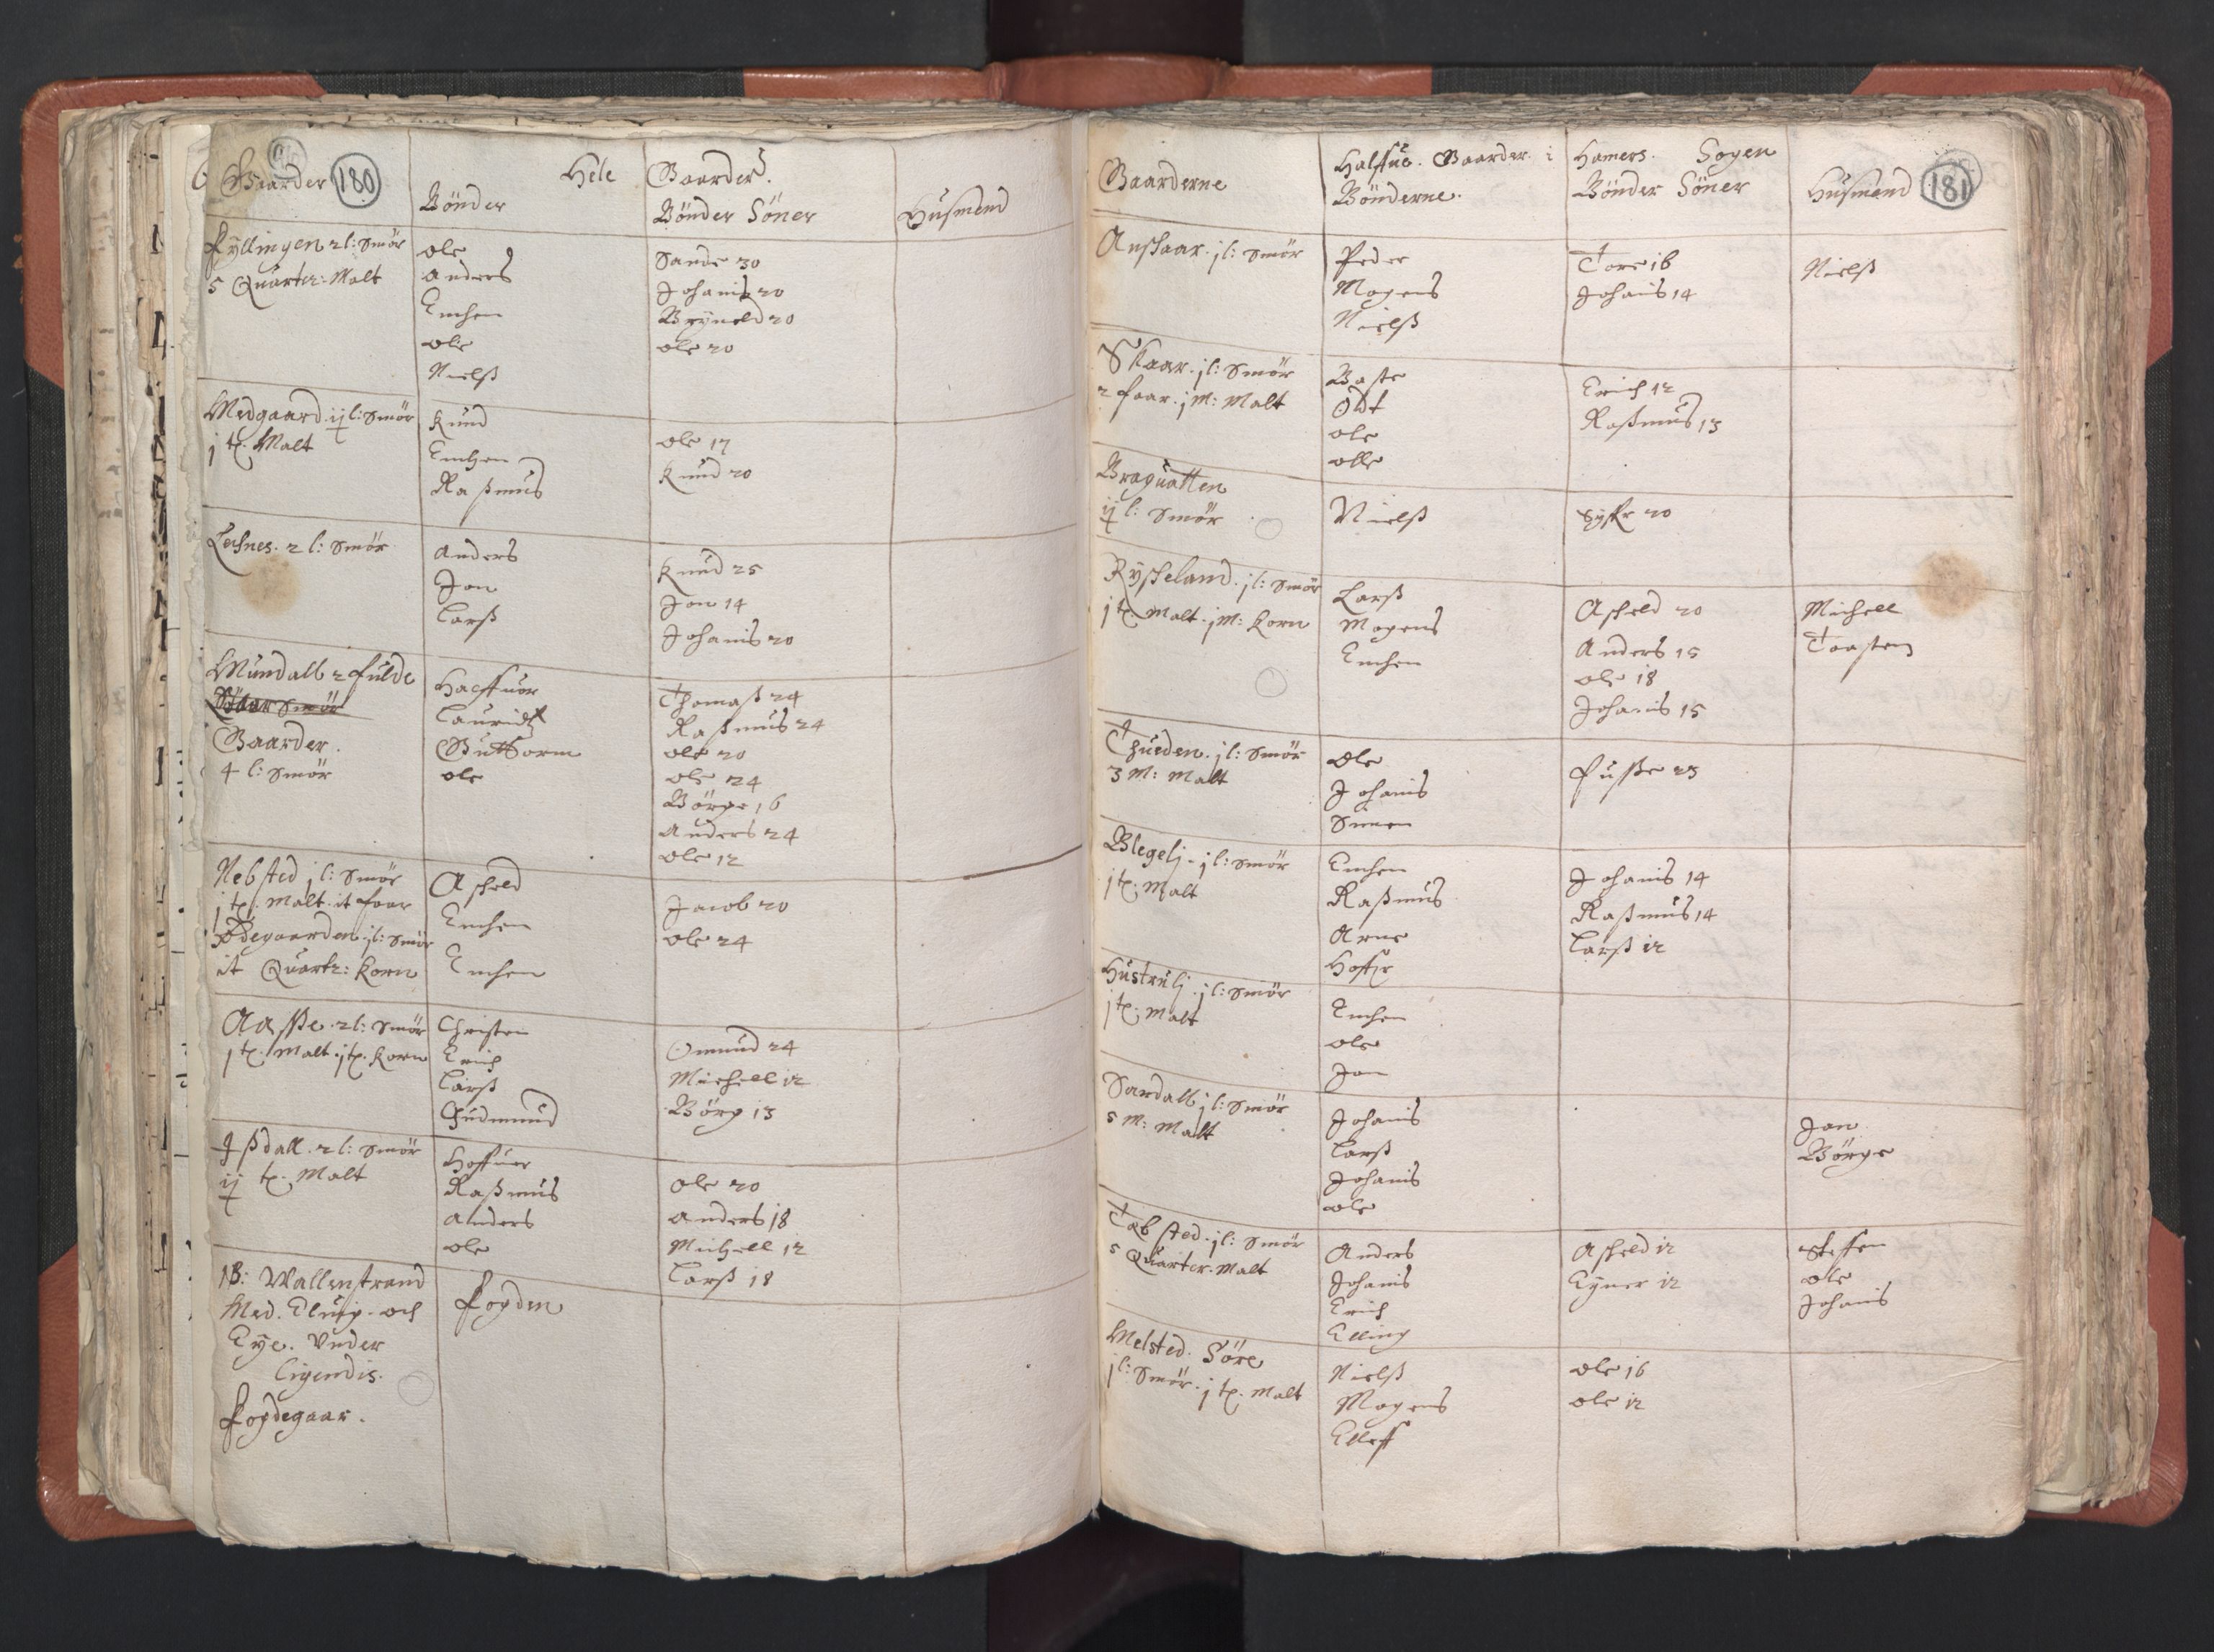 180
Gaarder
Hele Gaarder.
Bönder
Bönder Söner
Husmend
Fyllingen 2 l: Smör
5 Quarter: Malt
ole
Anders
Enchen
ole
Nielß
Sande 30
Johanis 20
Bryneld 20
ole 20
Medgaard ij l: Smör
j t. Malt
Knud
Enchen
Raßmus
ole 17
Knud 20
Lechnes. 2 l: Smör
Anders
Jon
Larß
Knud 25
Jon 14
Johanis 20
Mundall 2 fulde
Gaarder.
4 l: Smör
Haffuor
Lauridtz
Guttorm
ole
Thomaß 24
Raßmus 24
ole 20
ole 24
Börge 16
Anders 24
ole 12
Nebsted j l: Smör
j t. Malt. it faar
Ödegaarden. j l: Smör
it Quartr: Korn
Askeld
Enchen
Enchen
Jacob 20
ole 24
Aasße. 2 l: Smör
j t. Malt. j t. Korn
Christen
Erich
Larß
Gudmund
Omund 24
Michell 12
Börg 13
Jßdall. 2 l: Smör
ij t. Malt
Hoffuer
Raßmus
Anders
ole
ole 20
Anders 18
Michell 12
Larß 18
NB: Wallenstrand
Med. Elung. och
Eye. Vnder
Ligendis.
Fogdegaar.
Fogden
181
Halffue. Gaarder. i Hamers. Sogen
Gaarderne
Bönderne.
Bönder Söner
Husmend
Anskaar. j l: Smör
Peder
Mogens
Nielß
Tore 16
Johanis 14
Nielß
Skaar. j l: Smör
2 faar. j M: Malt
Baste
Odt
ole
olle
Erich 12
Raßmus 13
Braquatten
ij l: Smör
Nielß
Syffr 20
Rysseland. j l: Smör
j t. Malt. j M: Korn
Larß
Mogens
Enchen
Askeld 20
Anders 15
ole 18
Johanis 15
Michell
Torsten
Thueden. j l: Smör
3 M: Malt
Ole
Johanis
Simen
Fusße 23
Blegelj. j l: Smör
j t. Malt
Enchen
Raßmus
Arne
Johanis 14
Raßmus 14
Larß 12
Hustrulj. j l: Smör
j t. Malt
Enchen
ole
Jon
Sardall j l: Smör
5 M: Malt
Johanis
Larß
Johanis
ole
Jon
Börge
Tæbsted. j l: Smör
5 Quarter. Malt
Anders
Johanis
Erich
Elling
Askeld 12
Eyner 12
Steffen
ole
Johanis
Melsted. Söre
j l: Smör. j t. Malt
Nielß
Mogens
Elleff
ole 16
ole 12